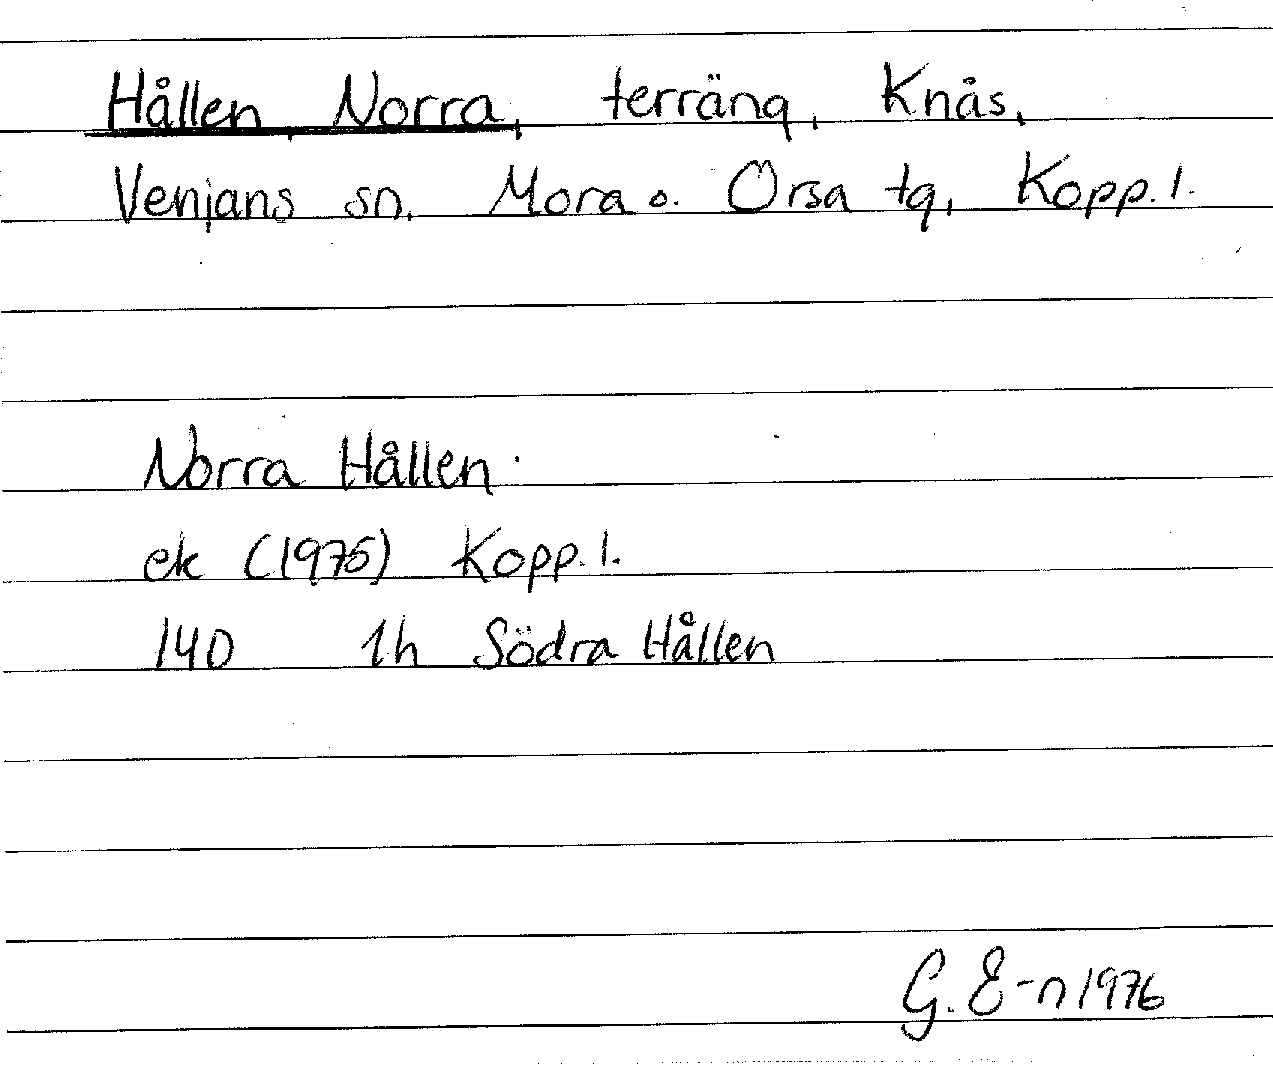 Hållen, Norra, terräng, Knås,
Venjans sn. Mora o. Orsa tg, Kopp. l.
Norra Hållen
ek (1975) Kopp. l.
140 1h Södra Hållen
G. E-n 1976